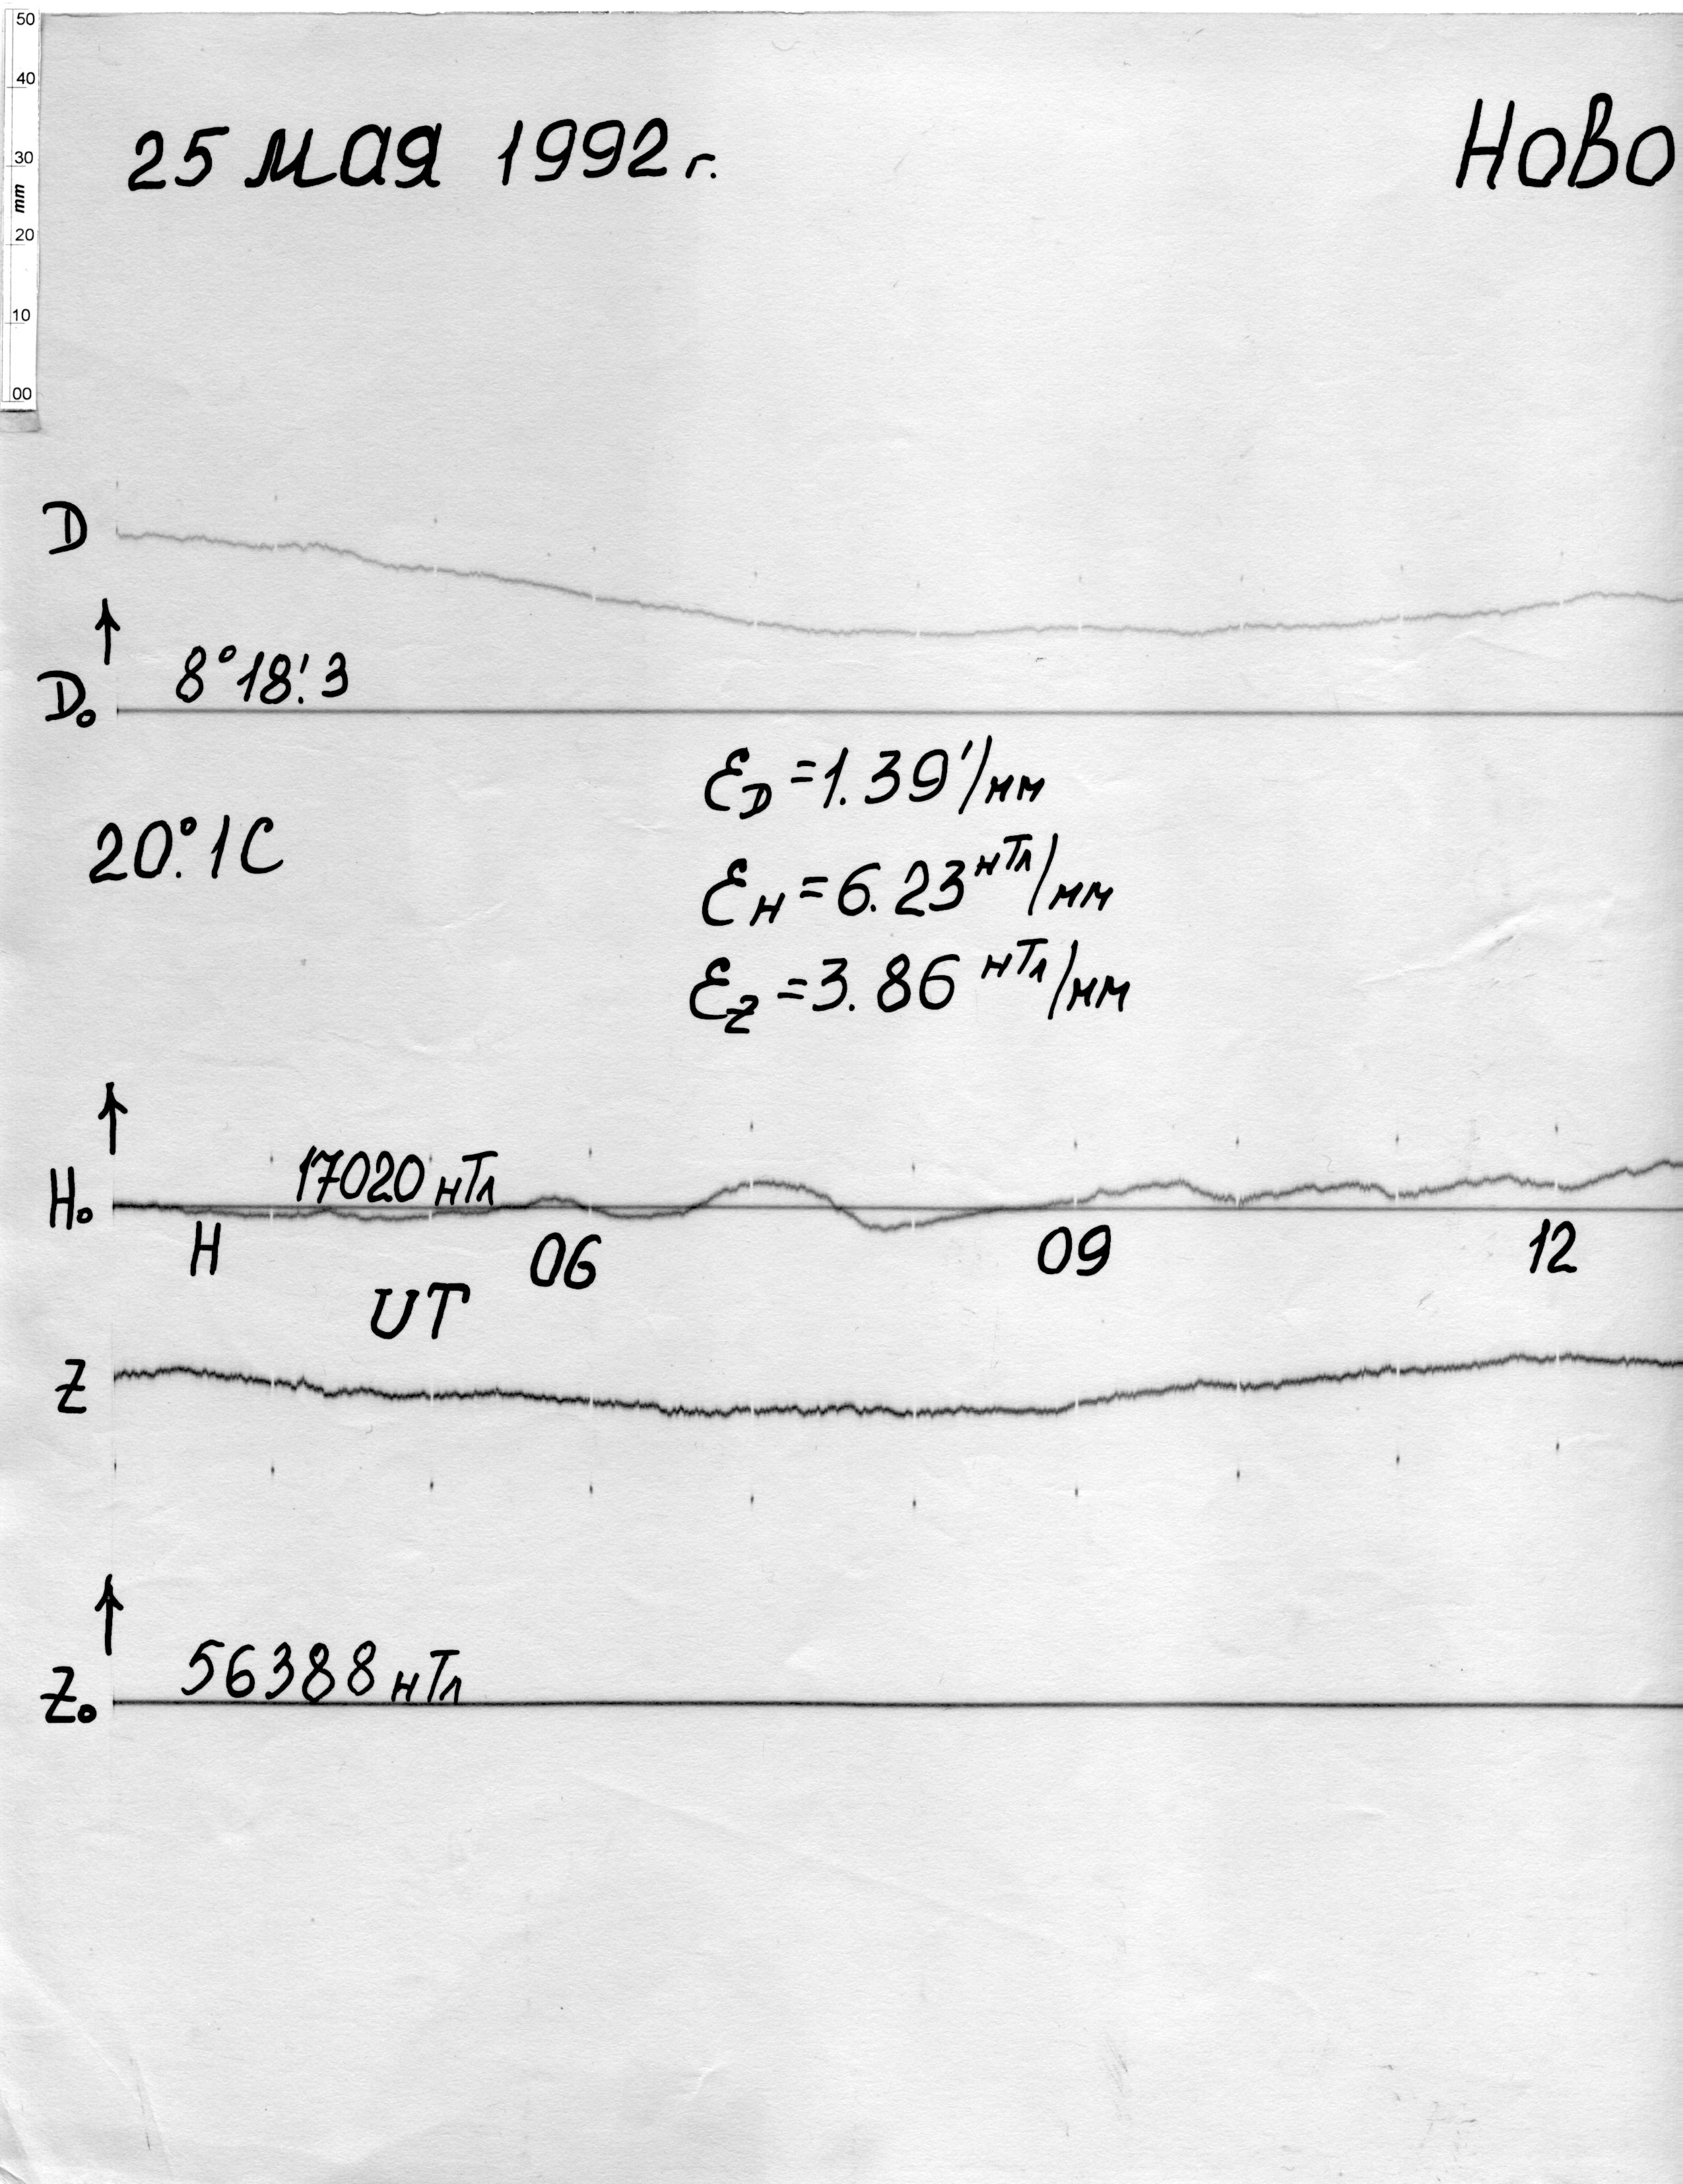 50
40
30
mm
20
10
00
25 мая 1992 г.
Ново
D
8°18!3
D₀
ε_D = 1.39'/мм
20°.1C
ε_H = 6.23 нТл/мм
ε_Z = 3.86 нТл/мм
17020 нТл
H₀
H
06
09
12
UT
Z
56388 нТл
Z₀